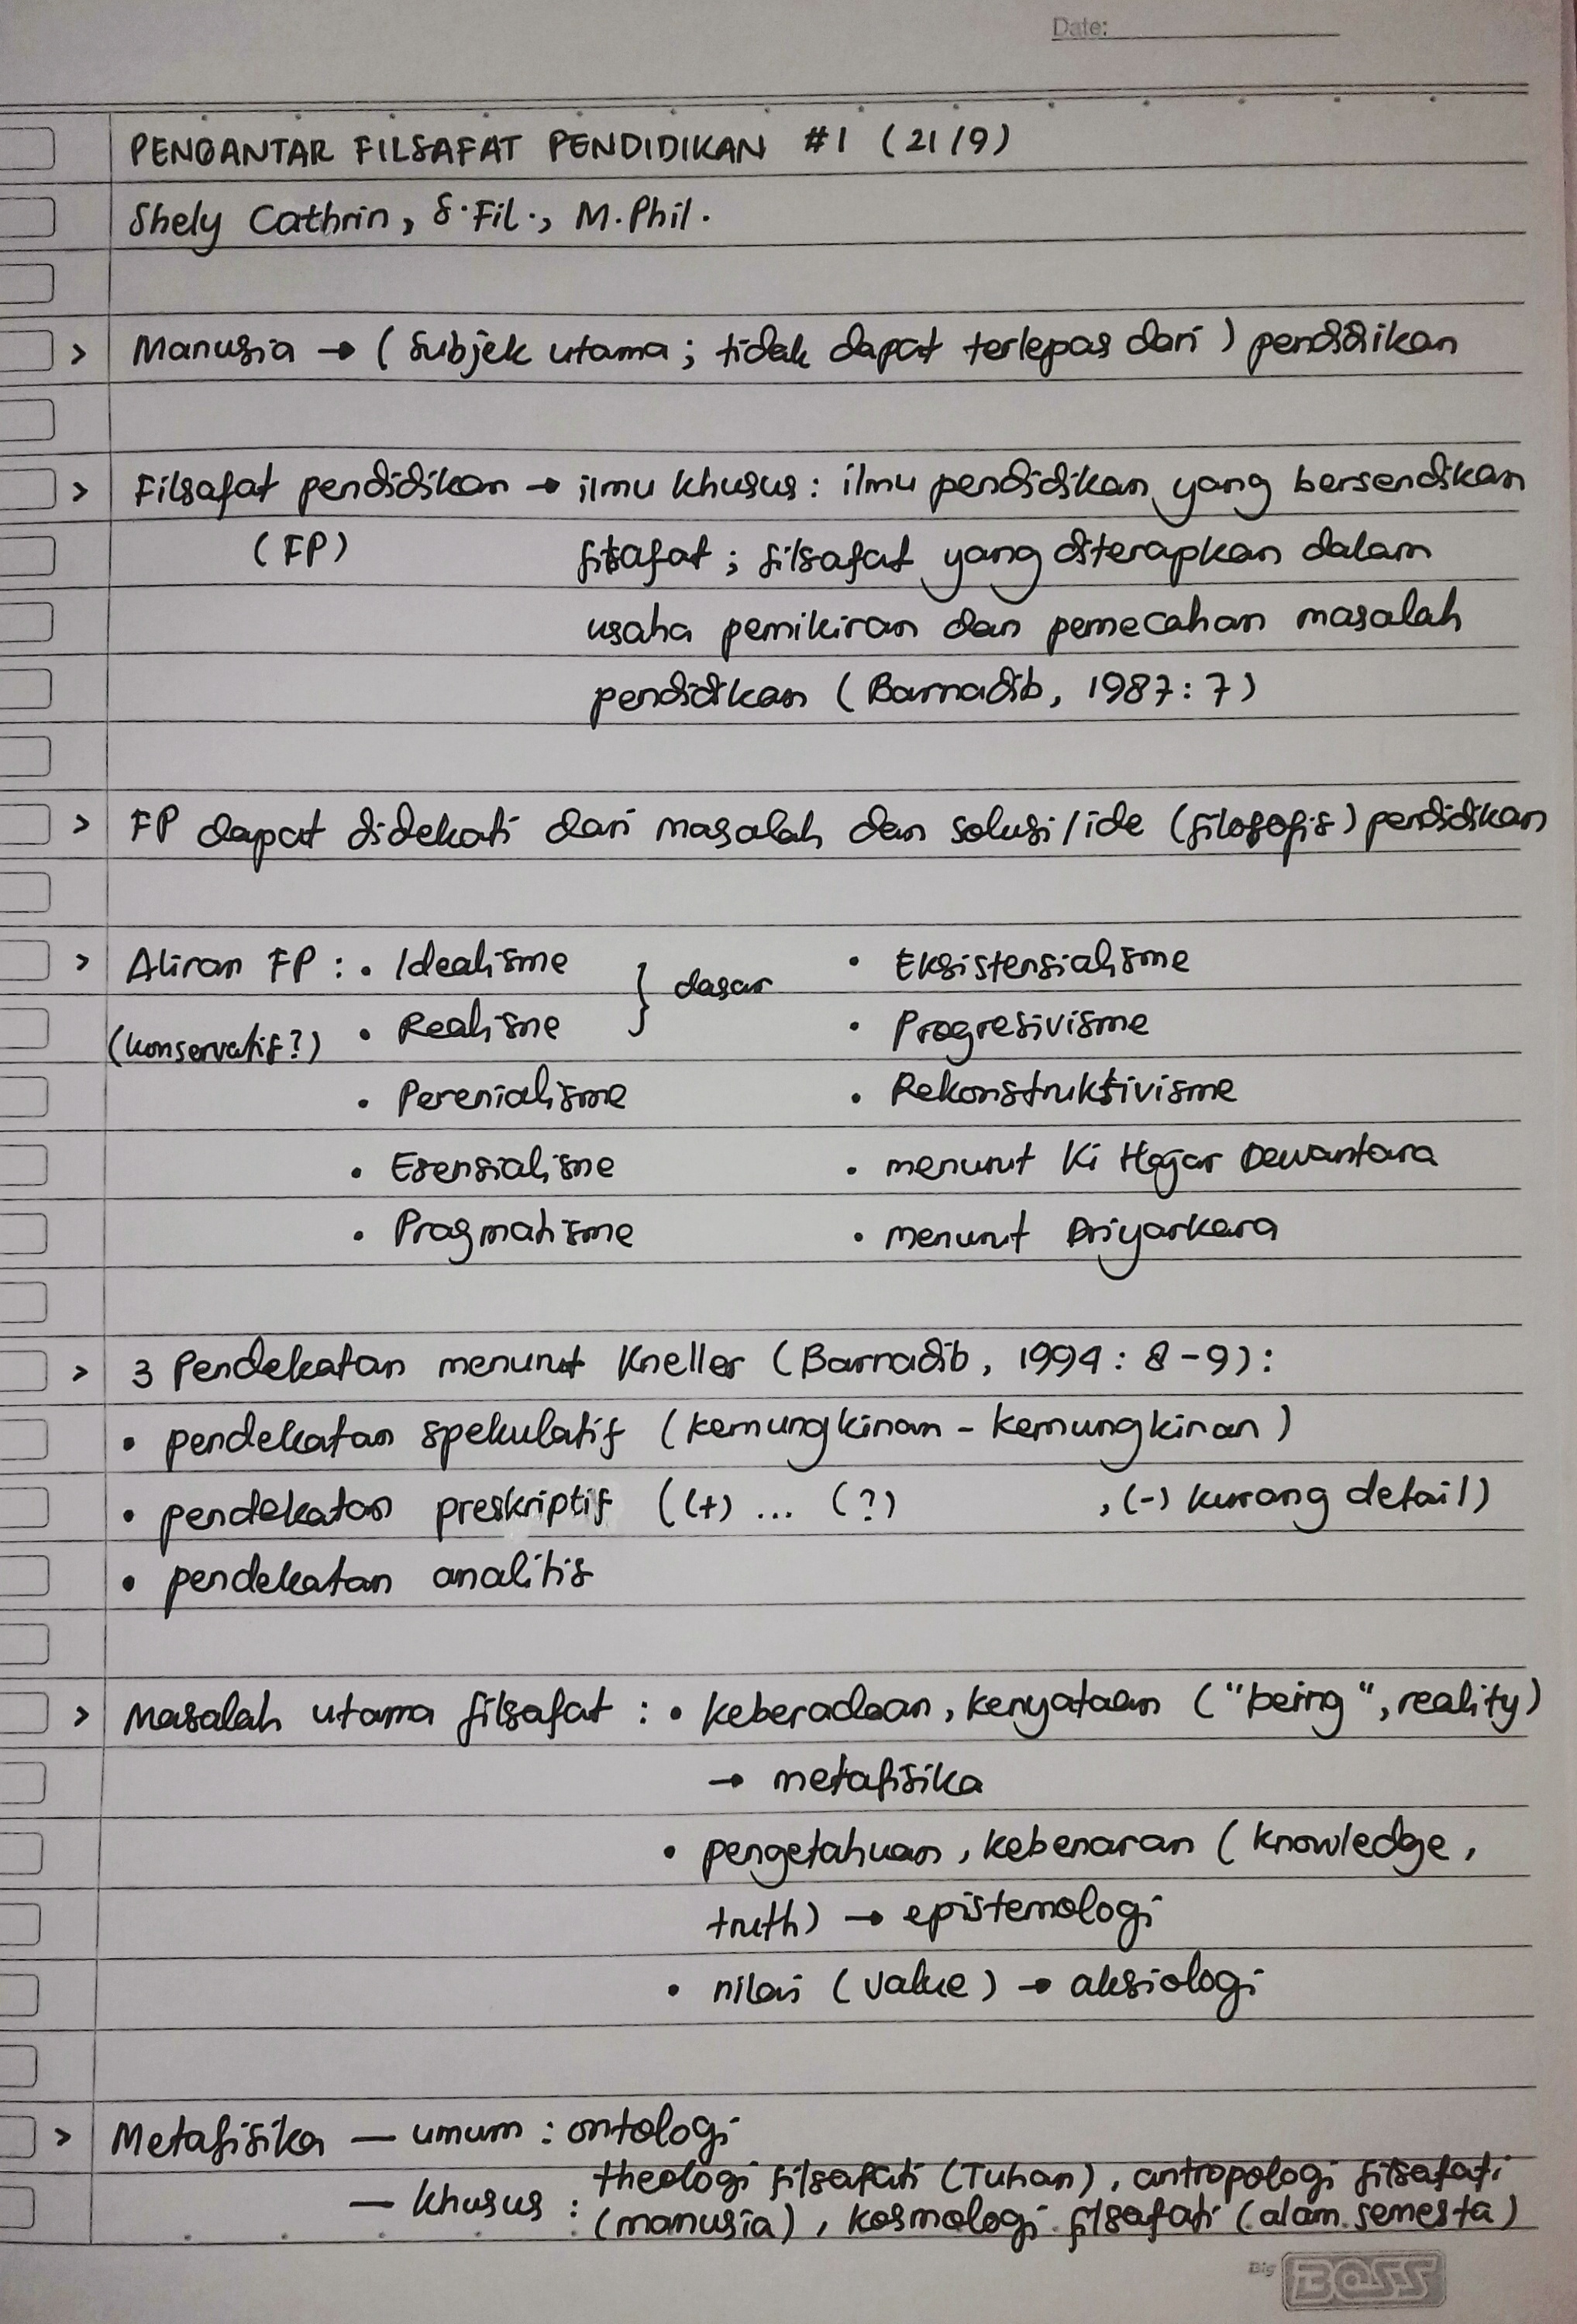 Date:
PENGANTAR FILSAFAT PENDIDIKAN #1 (21/9)
Shely Cathrin, S.Fil., M.Phil.
> Manusia → (subjek utama; tidak dapat terlepas dari) pendidikan
> Filsafat pendidikan → ilmu khusus: ilmu pendidikan yang bersendikan
(FP) filsafat; filsafat yang diterapkan dalam
usaha pemikiran dan pemecahan masalah
pendidikan (Barnadib, 1987:7)
> FP dapat didekati dari masalah dan solusi/ide (filosofis) pendidikan
> Aliran FP: • Idealisme } dasar • Eksistensialisme
(konservatif?) • Realisme • Progresivisme
• Perenialisme • Rekonstruktivisme
• Esensialisme • menurut Ki Hajar Dewantara
• Pragmatisme • menurut Driyarkara
> 3 Pendekatan menurut Kneller (Barnadib, 1994: 8-9):
• pendekatan spekulatif (kemungkinan - kemungkinan)
• pendekatan preskriptif ((+) ... (?) , (-) kurang detail)
• pendekatan analitis
> Masalah utama filsafat: • keberadaan, kenyataan ("being", reality)
→ metafisika
• pengetahuan, kebenaran (knowledge,
truth) → epistemologi
• nilai (value) → aksiologi
> Metafisika — umum: ontologi
— khusus: theologi filsafati (Tuhan), antropologi filsafati
(manusia), kosmologi filsafati (alam semesta)
Big BOSS